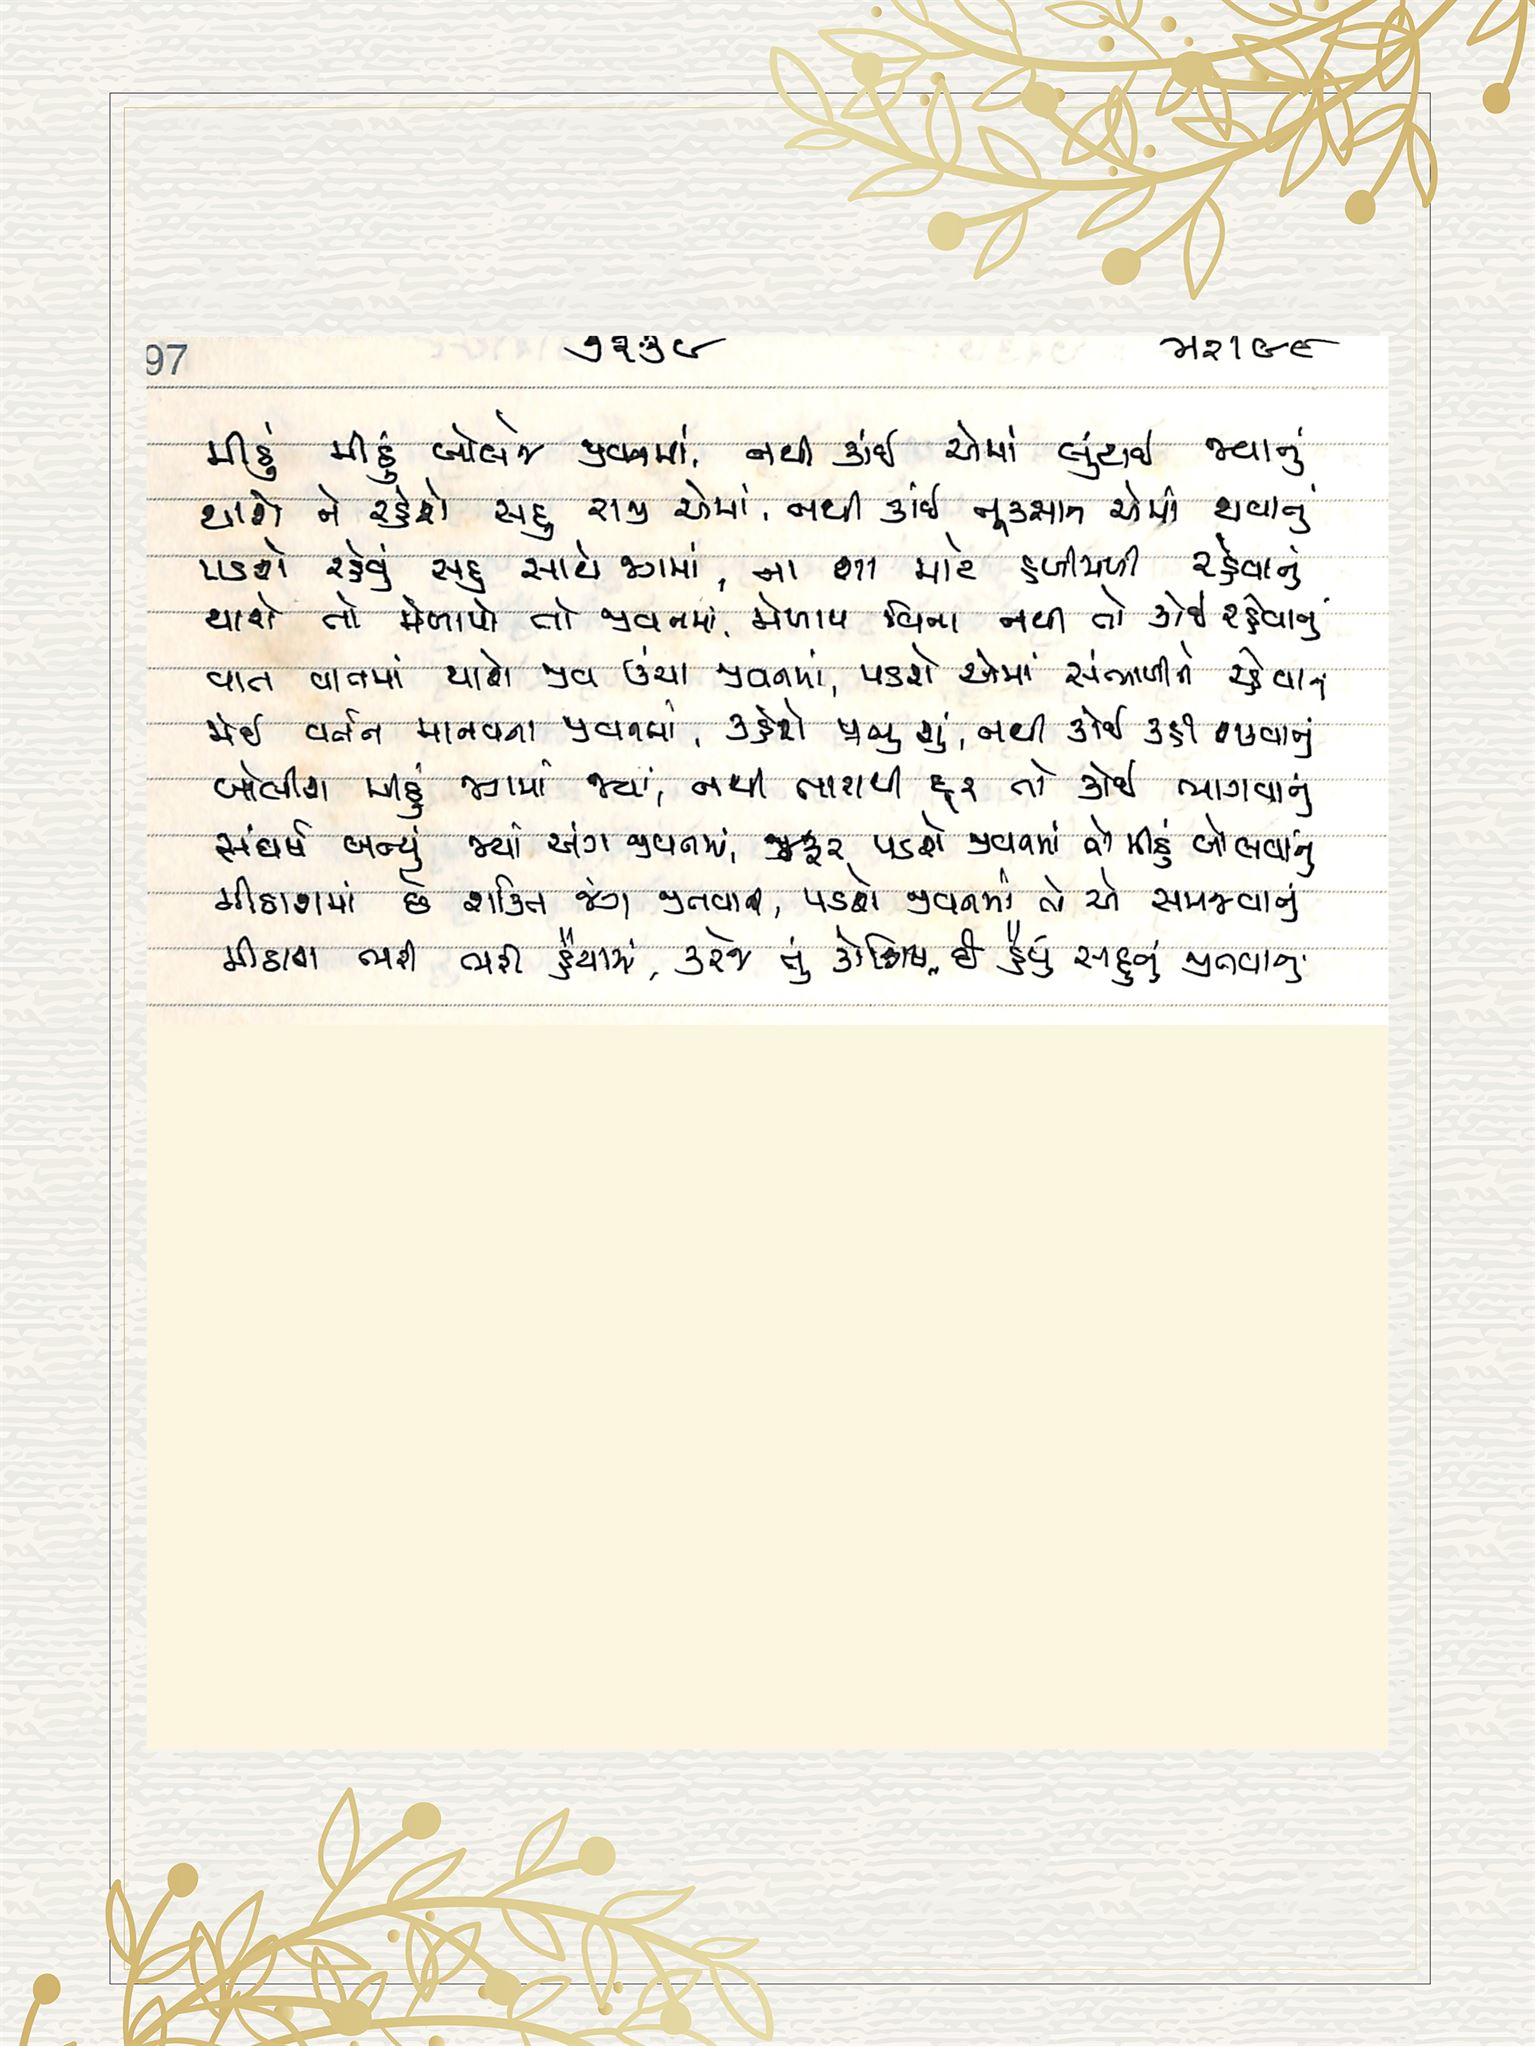 97
૭૨૩૯
મીઠું મીઠું બોલજે જીવનમાં, નથી કાંઈ એમાં લુંટાઈ જવાનું
થાશે ને રહેશે સહુ રાજી એમાં, નથી કાંઈ નૂકસાન એમાં થવાનું
પડશે રહેવું સહુ સાથે જગમાં, ના શા માટે હળીમળી રહેવાનું
થાશે તો મેળાપો તો જીવનમાં, મેળાપ વિના નથી તો કોઈ રહેવાનું
વાત વાતમાં થાશે જીવ ઉંચા જીવનમાં, પડશે એમાં સંભાળીને રહેવાનું
વર્તન માનવના જીવનમાં, કહેશે પ્રભુ શું, નથી કોઈ કહી શકવાનું
બોલીશ મીઠું જગમાં જ્યાં, નથી તારાથી દૂર તો કોઈ ભાગવાનું
સંઘર્ષ બન્યું જ્યાં અંગ જીવનમાં, જરૂર પડશે જીવનમાં તો મીઠું બોલવાનું
મીઠાશમાં છે શક્તિ જંગ જીતવાની, પડશે જીવનમાં તો એ સમજવાનું
મીઠાશ ભરી ભરી હૈયામાં, કરજે તું કોશિષ હૈયું સહુનું જીતવાનું